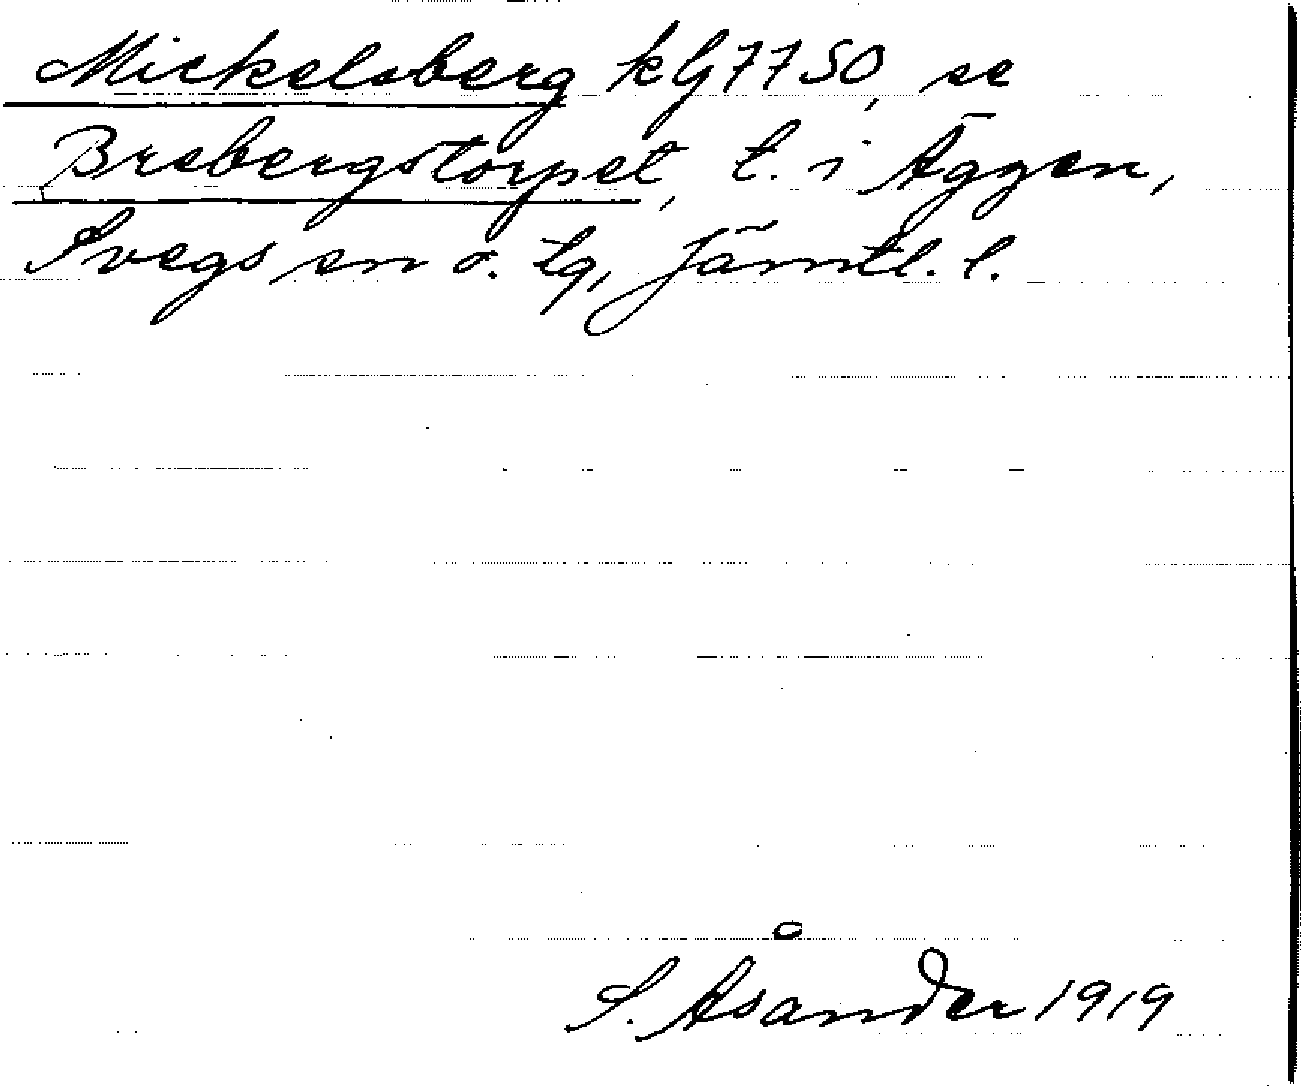 Mickelsberg kG7750, se
Brebergstorpet, t. i Äggen,
Svegs sn o. tg, Jämtl. l.
S. Åsander 1919